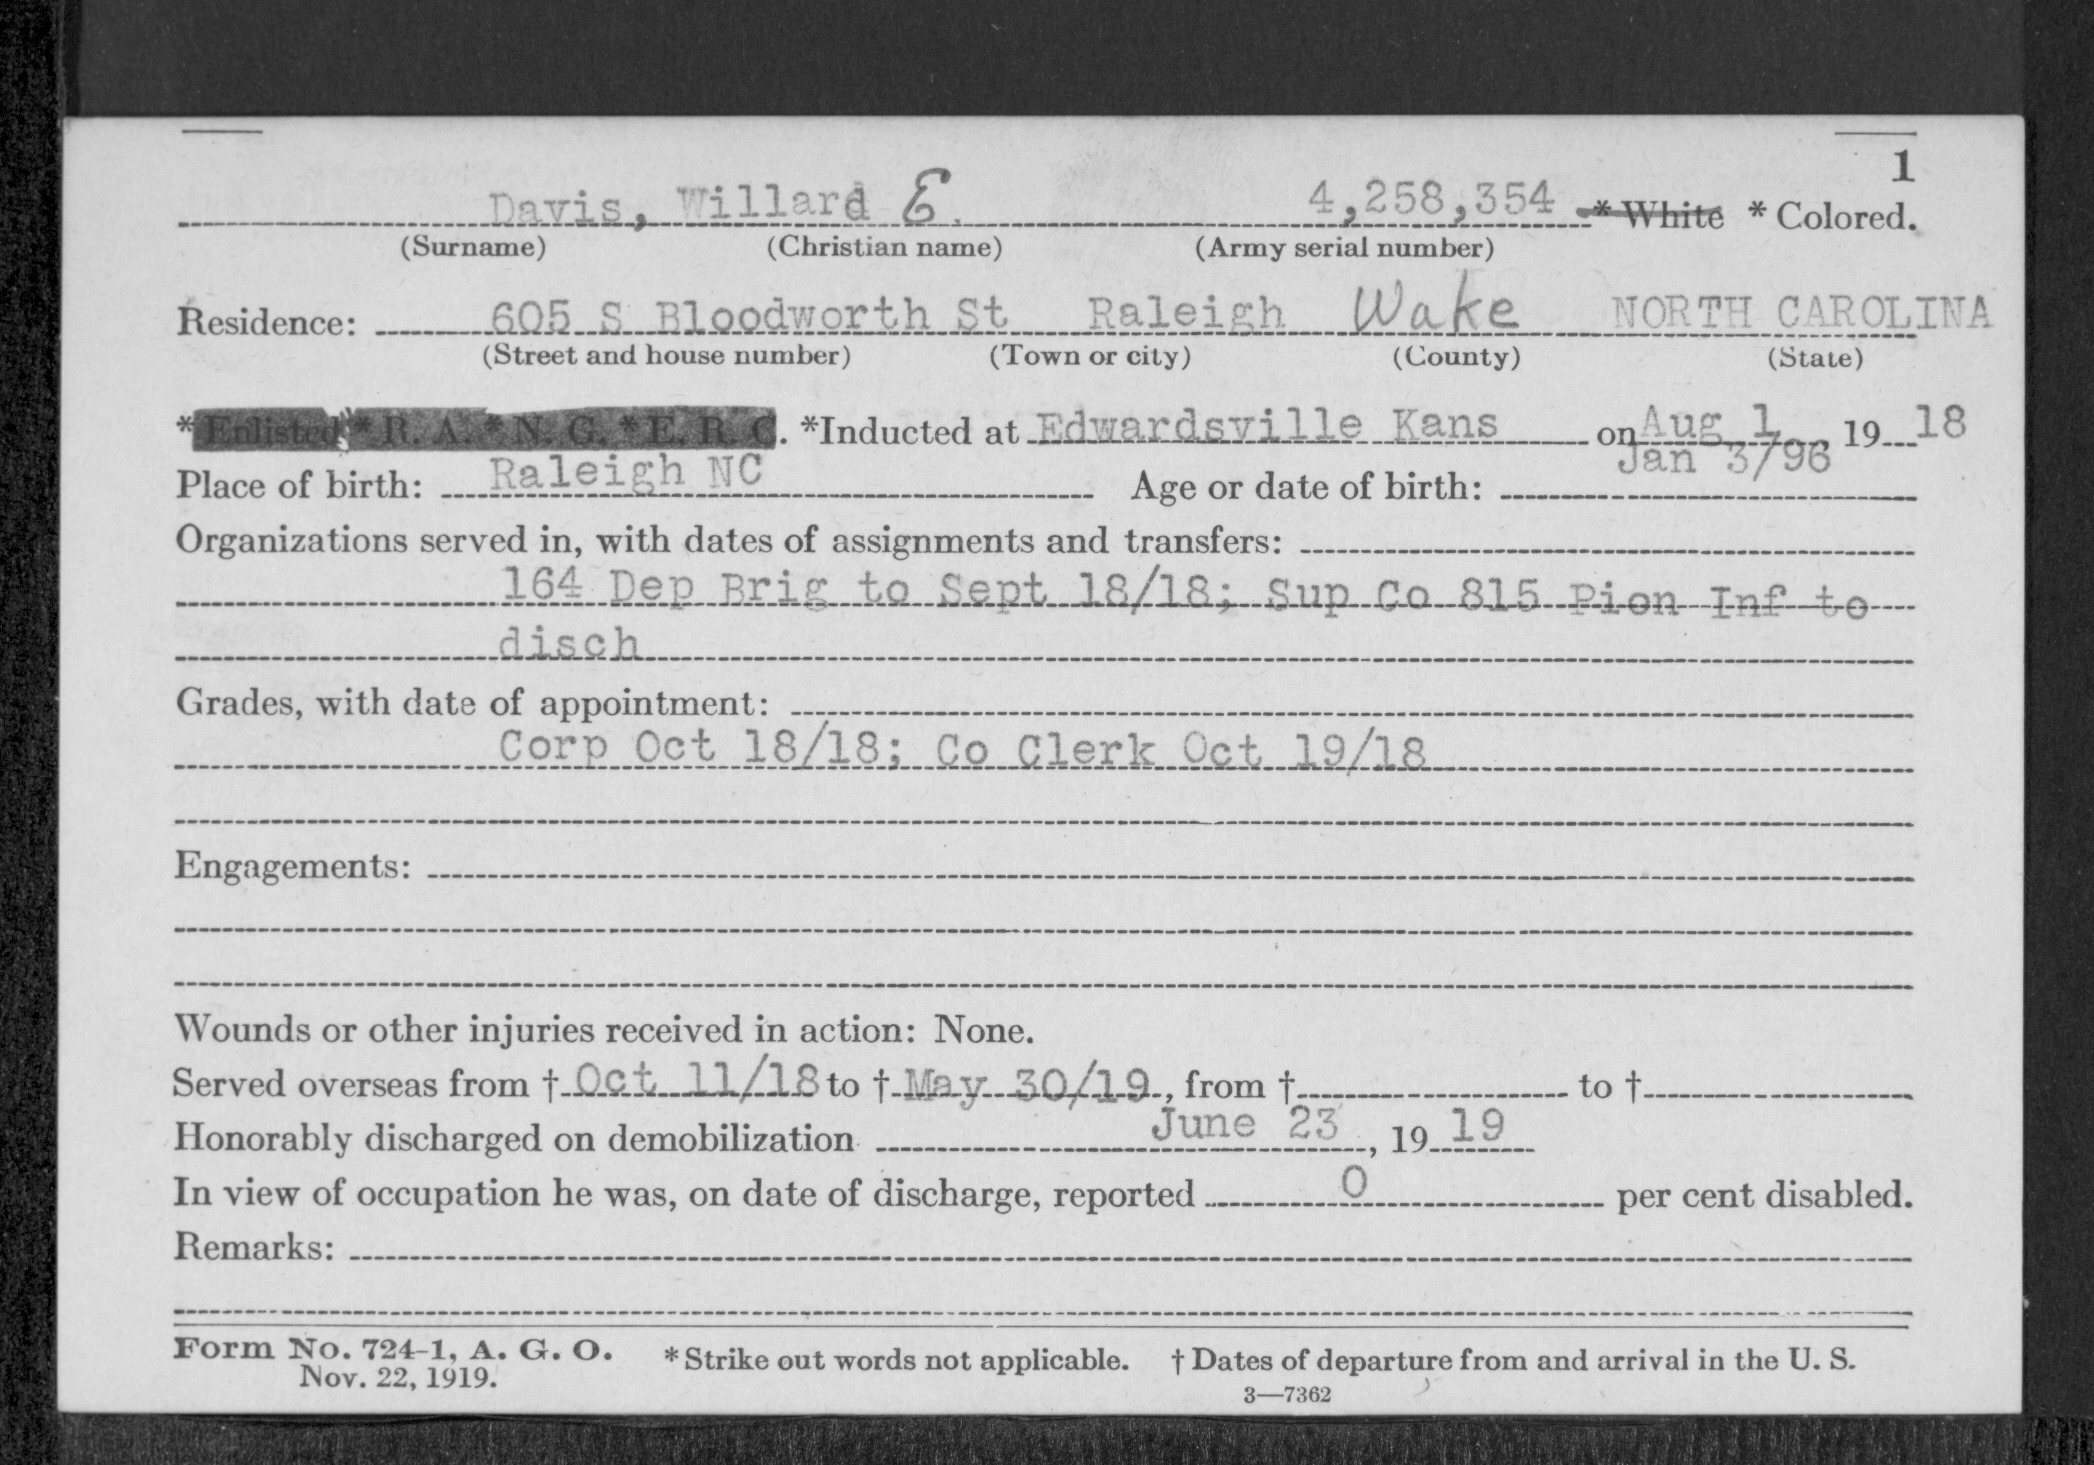 1
Davis, Willard E. 4,258,354 * White * Colored.
(Surname) (Christian name) (Army serial number)
Residence: 605 S Bloodworth St Raleigh Wake NORTH CAROLINA
(Street and house number) (Town or city) (County) (State)
*Enlisted * R. A. * N. G. * E. R. C. *Inducted at Edwardsville Kans on Aug 1, 1918
Place of birth: Raleigh NC Age or date of birth: Jan 3/96
Organizations served in, with dates of assignments and transfers:
164 Dep Brig to Sept 18/18; Sup Co 815 Pion Inf to
disch
Grades, with date of appointment:
Corp Oct 18/18; Co Clerk Oct 19/18
Engagements:
Wounds or other injuries received in action: None.
Served overseas from † Oct 11/18 to † May 30/19, from † to †
Honorably discharged on demobilization June 23, 1919
In view of occupation he was, on date of discharge, reported 0 per cent disabled.
Remarks:
Form No. 724-1, A. G. O. * Strike out words not applicable. † Dates of departure from and arrival in the U. S.
Nov. 22, 1919.
3—7362